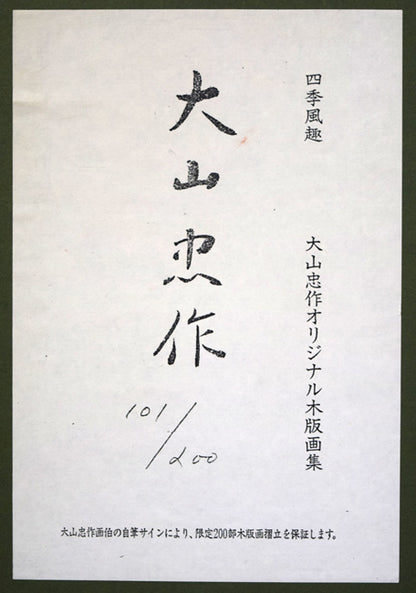 四季風趣 大山忠作オリジナル木版画集
大山忠作
101/200
大山忠作画伯の自筆サインにより、限定200部木版画摺立を保証します。